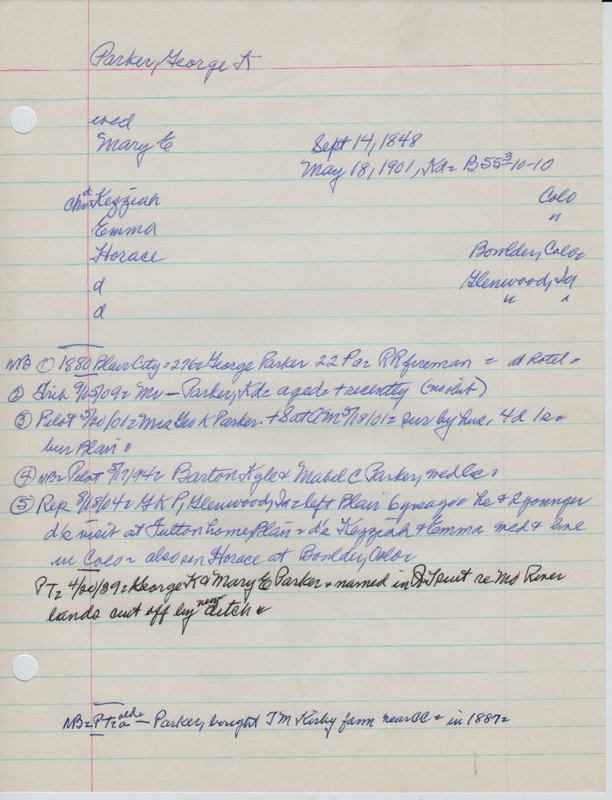 Parker, George K
wed
Mary E Sept 14, 1848
May 18, 1901, Kd= B55-3-10-10
chd= Kezziah Colo
Emma "
Horace Boulder, Colo
d Glenwood, Ia
d " "
NB ① 1880 Blair City = 276= George Parker 22 Pa= RR fireman = at hotel =
② 9/25/09= Mv — Parker, Kd= aged + recently (no obit)
③ Pilot 5/20/01= Mrs Geo K Parker + Sat AM 5/18/01= sur by hus, 4 d 1s=
bur Blair =
④ NB= Pilot 5/17/94= Barton Kyle & Mabel C Parker, med lc=
⑤ Rep 8/18/04= G K P, Glenwood, Ia= left Blair 6 yrs ago= he & 2 younger
d's visit at Sutton home, Blair= d's Kezziah & Emma med & live
in Colo= also son Horace at Boulder, Colo=
PT= 4/20/39= George K & Mary E Parker = named in suit re Mo River
lands cut off by new ditch =
NB= PT= — Parker, bought J M Kirby farm near CC = in 1887=